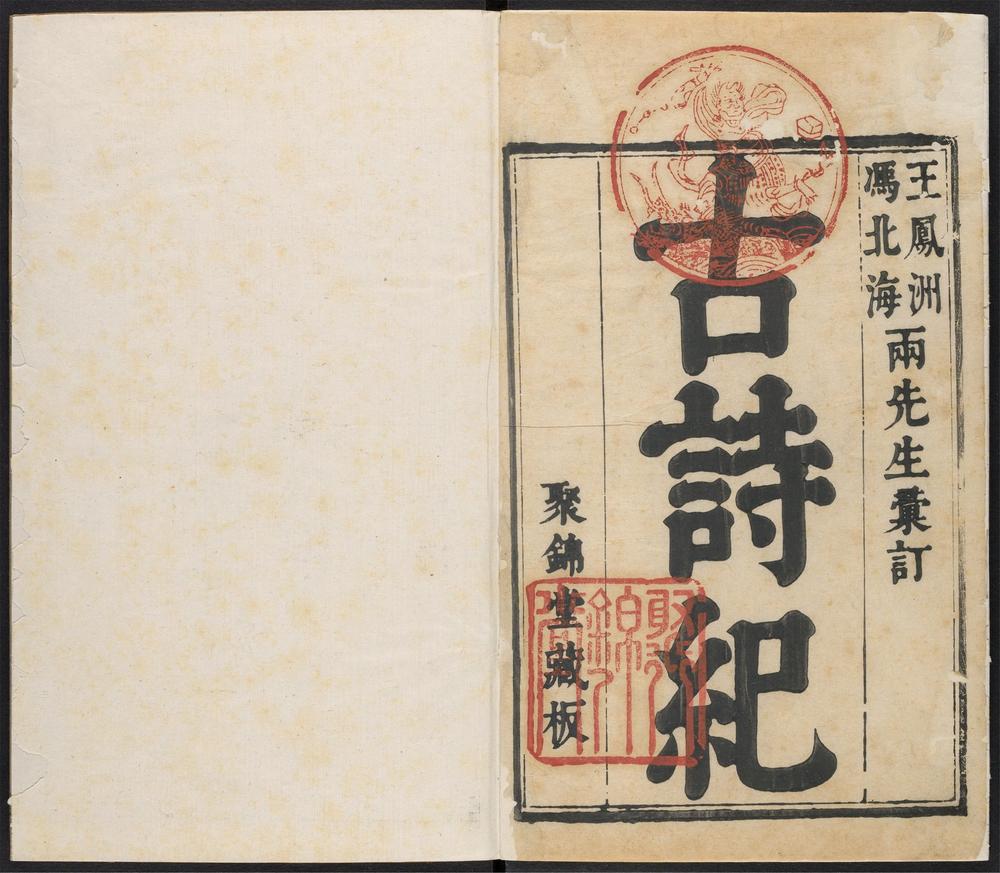 王鳳洲
馮北海
兩先生彙訂
古詩紀
聚錦堂藏板
聚錦堂